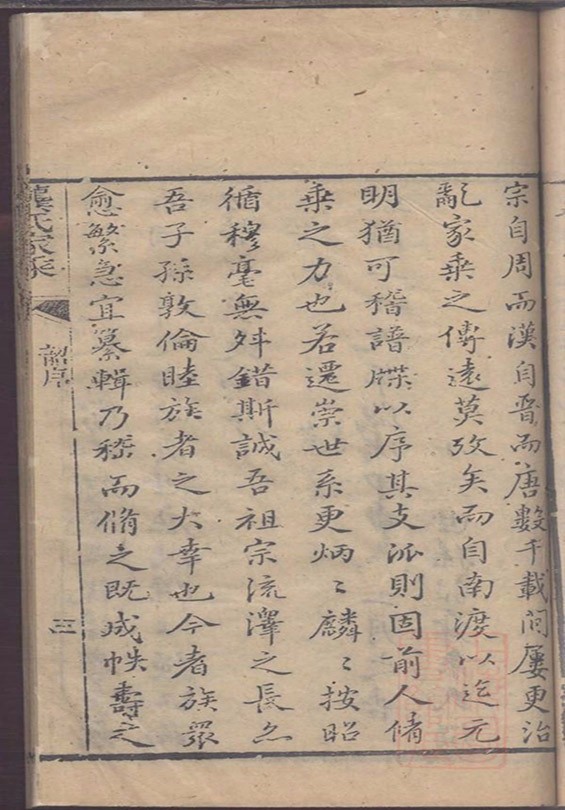 宗自周而漢自晋而唐數千載间屢更治
亂家乗之傳遠莫攷矣而自南渡以迄元
明猶可稽譜牒以序其支派則固前人脩
乗之力也若遷崇世系更炳〻麟〻按昭
循穆毫無舛錯斯誠吾祖宗流澤之長
吾子孫敦倫睦族者之大幸也今者族眾
愈繁急宜纂輯乃稽而脩之既成帙壽之
龔氏家乘
韶序
三